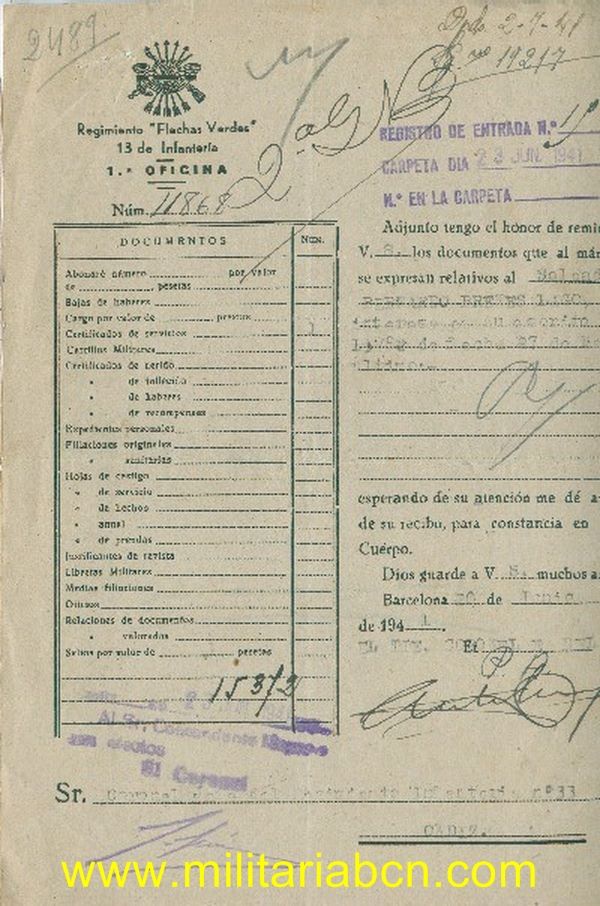 2489
Dpdo 2-7-41
19217
Regimiento "Flechas Verdes"
13 de Infantería
1.ª OFICINA
Núm. 11868
REGISTRO DE ENTRADA N.º
CARPETA DIA 23 JUN. 1941
N.º EN LA CARPETA
DOCUMENTOS NUM.
Abonaré número por valor
de pesetas
Bajas de haberes
Cargo por valor de pesetas
Certificados de servicios 1
Cartillas Militares
Certificados de cerido
" de soltería
" de haberes
" de recompensas
Expedientes personales
Filiaciones originales
" sanitarias
Hojas de castigo
" de servicio
" de hechos
" anual
" de prendas
Justificantes de revista
Libretas Militares
Medias filiaciones
Oficios
Relaciones de documentos
" valoradas
Sellos por valor de pesetas
15312
Adjunto tengo el honor de remi
V. S. los documentos que al már
se expresan relativos al
esperando de su atención me dé a
de su recibo, para constancia en
Cuerpo.
Dios guarde a V. S. muchos a
Barcelona 20 de Junio
de 1941.
EL TTE. CORONEL
El
Al Sr. Comandante Mayor
sus efectos
El Coronel
Sr. Coronel Infanteria nº 33
CADIZ.
www.militariabcn.com